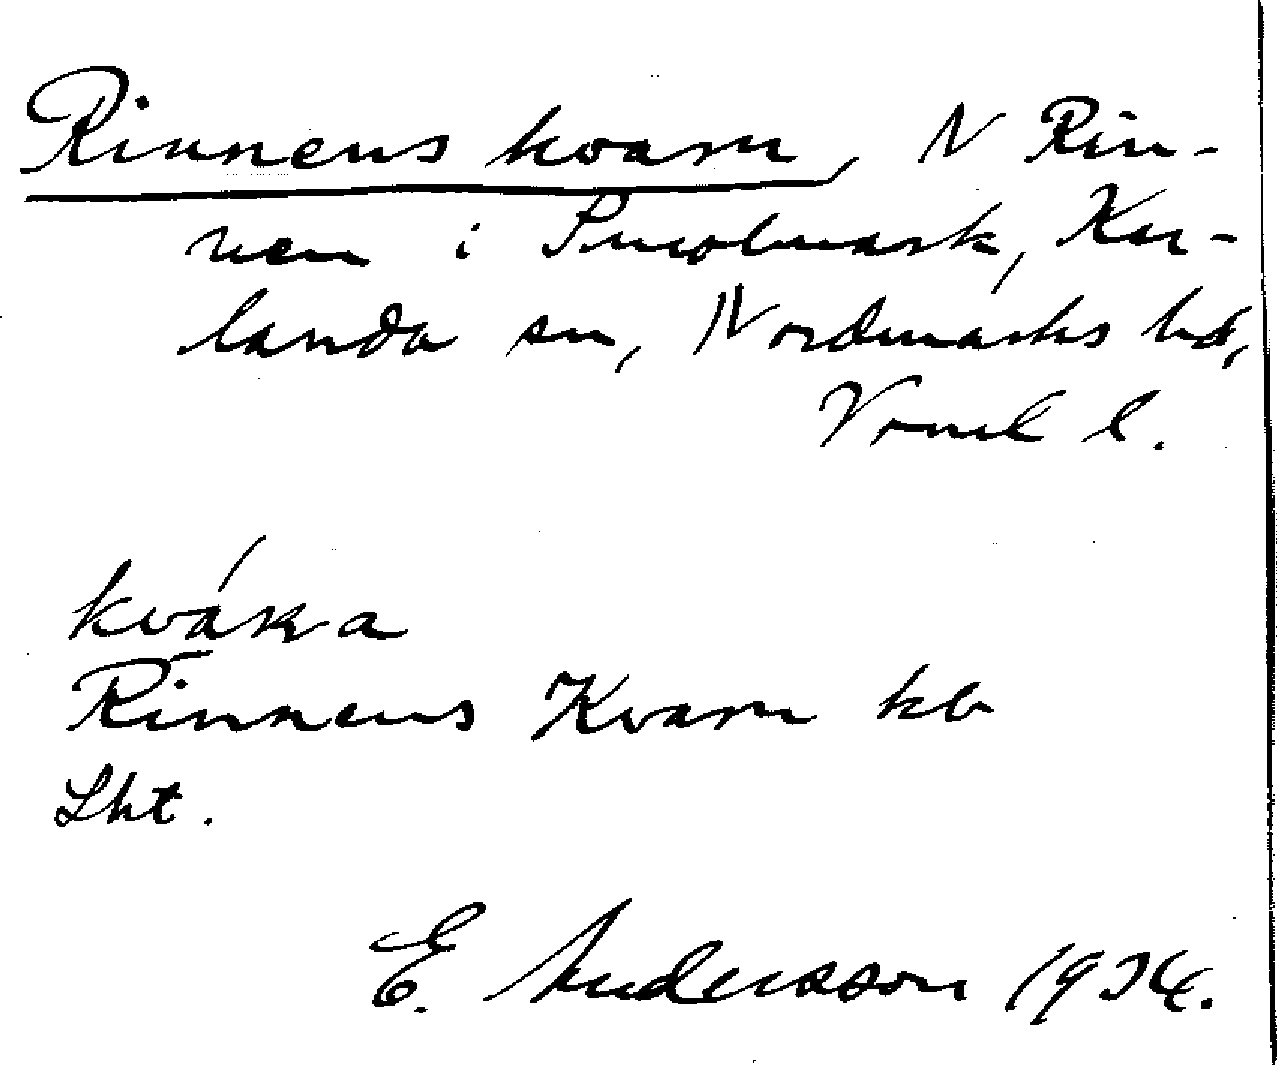 Rinnens kvarn, N Rin-
nen i Smolmark, Kar-
landa sn, Nordmarks hd,
Vrml l.
Rinnens Kvarn kb
Lht.
E. Andersson 1934.